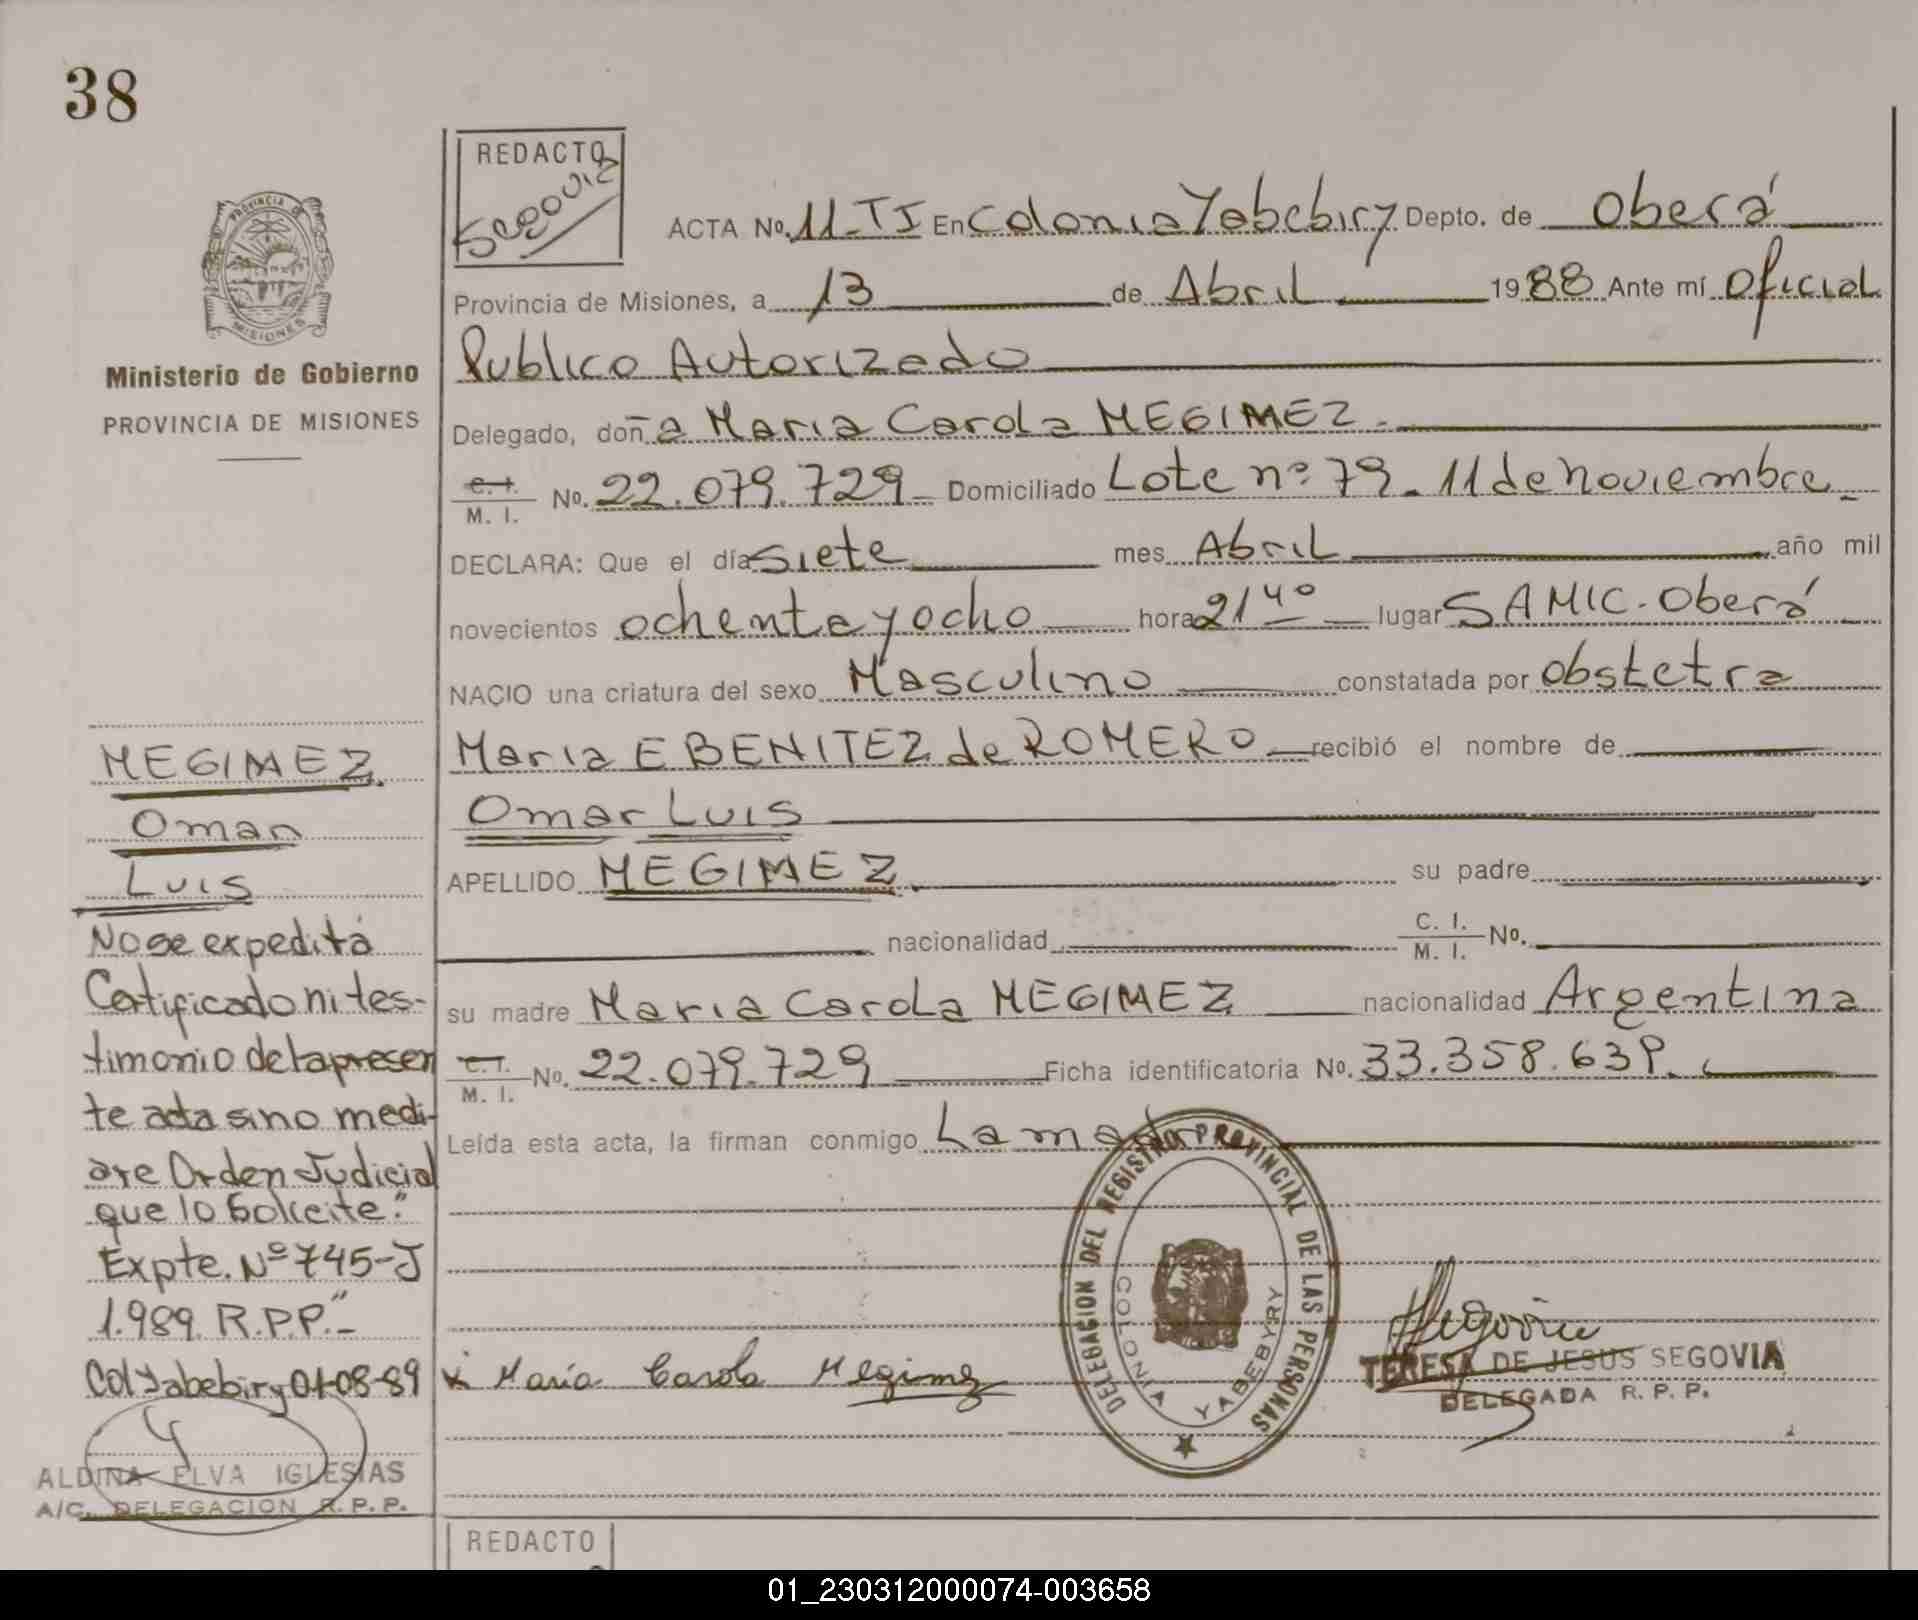 38
REDACTO
Segovia
ACTA No. 11-TI En Colonia Yabebiry Depto. de Oberá
Provincia de Misiones, a 13 de Abril 1988 Ante mí Oficial
Publico Autorizado
Delegado, doña Maria Carola MEGIMEZ.
C. I. / M. I. No. 22.079.729 Domiciliado Lote nº 79. 11 de Noviembre
DECLARA: Que el día Siete mes Abril año mil
novecientos ochenta y ocho hora 21 40 lugar SAMIC. Oberá
NACIO una criatura del sexo Masculino constatada por obstetra
Maria E BENITEZ de ROMERO recibió el nombre de
Omar Luis
APELLIDO MEGIMEZ. su padre
nacionalidad C. I. / M. I. No.
su madre Maria Carola MEGIMEZ nacionalidad Argentina
C. I. / M. I. No. 22.079.729 Ficha identificatoria No. 33.358.639.
Leída esta acta, la firman conmigo La madre
María Carola Megimez
DELEGACION DEL REGISTRO PROVINCIAL DE LAS PERSONAS
COLONIA YABEBYRY
Segovia
TERESA DE JESUS SEGOVIA
DELEGADA R. P. P.
PROVINCIA DE
MISIONES
Ministerio de Gobierno
PROVINCIA DE MISIONES
MEGIMEZ
Omar
Luis
No se expedita
Certificado ni tes-
timonio de la presen
te acta sino medi-
are Orden Judicial
que lo Solicite."
Expte. Nº 745-J
1.989. R.P.P."-
Col Yabebiry 01-08-89
ALDINA ELVA IGLESIAS
A/C. DELEGACION R. P. P.
REDACTO
01_230312000074-003658